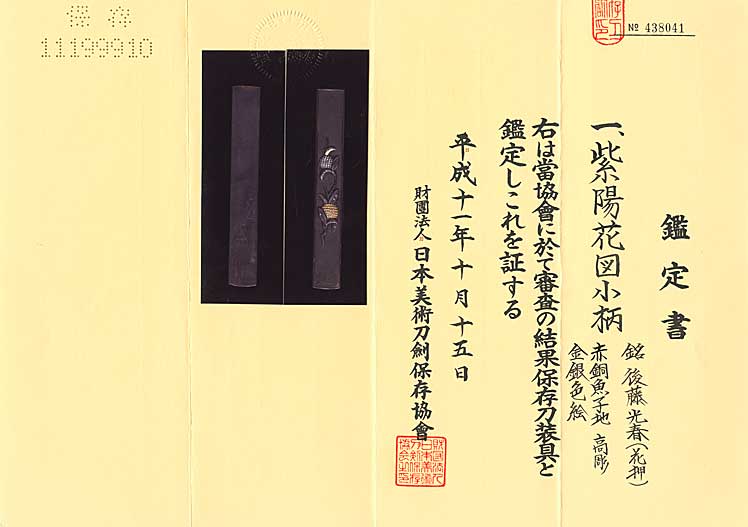 保存
11199910
№ 438041
鑑定書
一、紫陽花図小柄
銘 後藤光春(花押)
赤銅魚子地 高彫
金銀色絵
右は當協會に於て審査の結果保存刀装具と
鑑定しこれを証する
平成十一年十月十五日
財團法人 日本美術刀劍保存協會